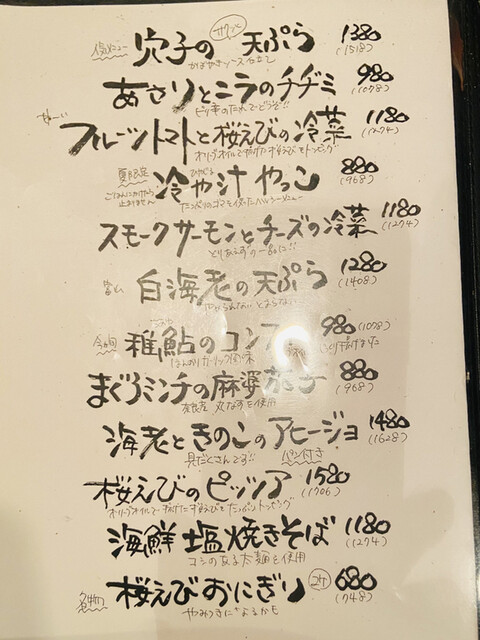 サクッと
穴子の天ぷら 1380
かばやきソース仕立て (1518)
あさりとニラのチヂミ 980
ピリ辛のたれでどうぞ!! (1078)
フルーツトマトと桜えびの冷菜 1180
オリーブオイルで揚げた桜えびをトッピング (1274)
夏限定 冷や汁やっこ 880
ごはんにかけたら止まりません (968)
たっぷりのゴマを使ったヘルシーメニュー
スモークサーモンとチーズの冷菜 1180
とりあえずの一品に!! (1274)
白海老の天ぷら 1280
やめられない とまらない (1408)
稚鮎のコンフィ 980 (1078)
ほんのりガーリック風味
まぐろミンチの麻婆茄子 880
奈良産 丸なすを使用 (968)
海老ときのこのアヒージョ 1480
具だくさんです!! パン付き (1628)
桜えびのピッツア 1580
オリーブオイルで揚げた桜えびをたっぷりトッピング (1706)
海鮮塩焼きそば 1180
コシのある太麺を使用 (1274)
名物 桜えびおにぎり 2ケ 680
やみつきになるかも (748)